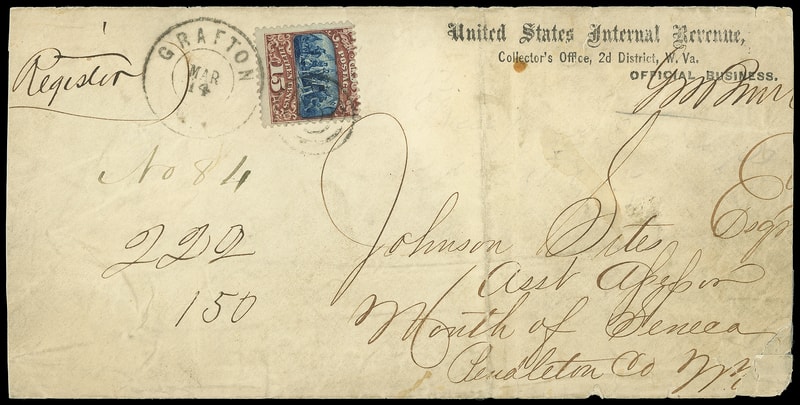 United States Internal Revenue,
Collector's Office, 2d District, W. Va.
OFFICIAL BUSINESS.
Register
GRAFTON
MAR
14
POSTAGE
15
FIFTEEN CENTS
No 84
222
150
Johnson Sites Esqr
Asst Assessor
Mouth of Seneca
Pendleton Co